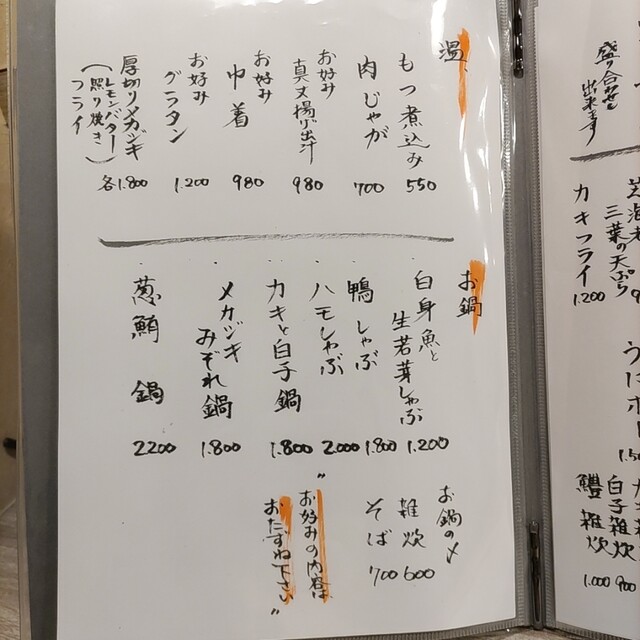 盛り合わせも
出来ます
三葉の天ぷら
カキフライ
1.200
白子雑炊
900
雑炊
1.000
温
もつ煮込み
550
肉じゃが
700
お好み
真丈揚げ出汁
980
お好み
巾着
980
お好み
グラタン
1.200
厚切りメカジキ
(レモンバター
照り焼き
フライ)
各1.800
お鍋
白身魚と
生若芽しゃぶ
1.200
鴨しゃぶ
1.800
ハモしゃぶ
2.000
カキと白子鍋
1.800
メカジキ
みぞれ鍋
1.800
葱鮪鍋
2200
お鍋の〆
雑炊
600
そば
700
"お好みの内容は
おたずね下さい"